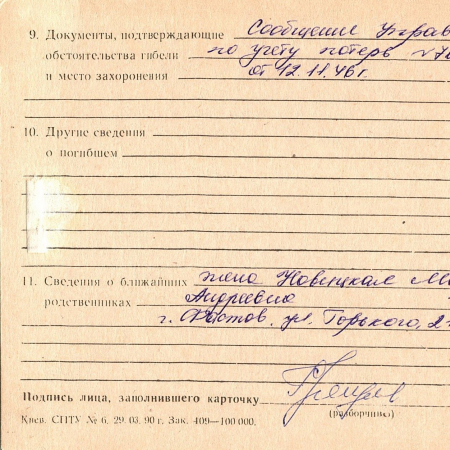 9. Документы, подтверждающие Сообщение Управ
обстоятельства гибели по учету потерь
и место захоронения от 12.11.46 г.
10. Другие сведения
о погибшем
11. Сведения о ближайших жена Новицкая
родственниках Андреевна
г. Фастов, ул. Горького, 2
Подпись лица, заполнившего карточку
(разборчиво)
Киев. СПТУ № 6. 29. 03. 90 г. Зак. 409—100 000.